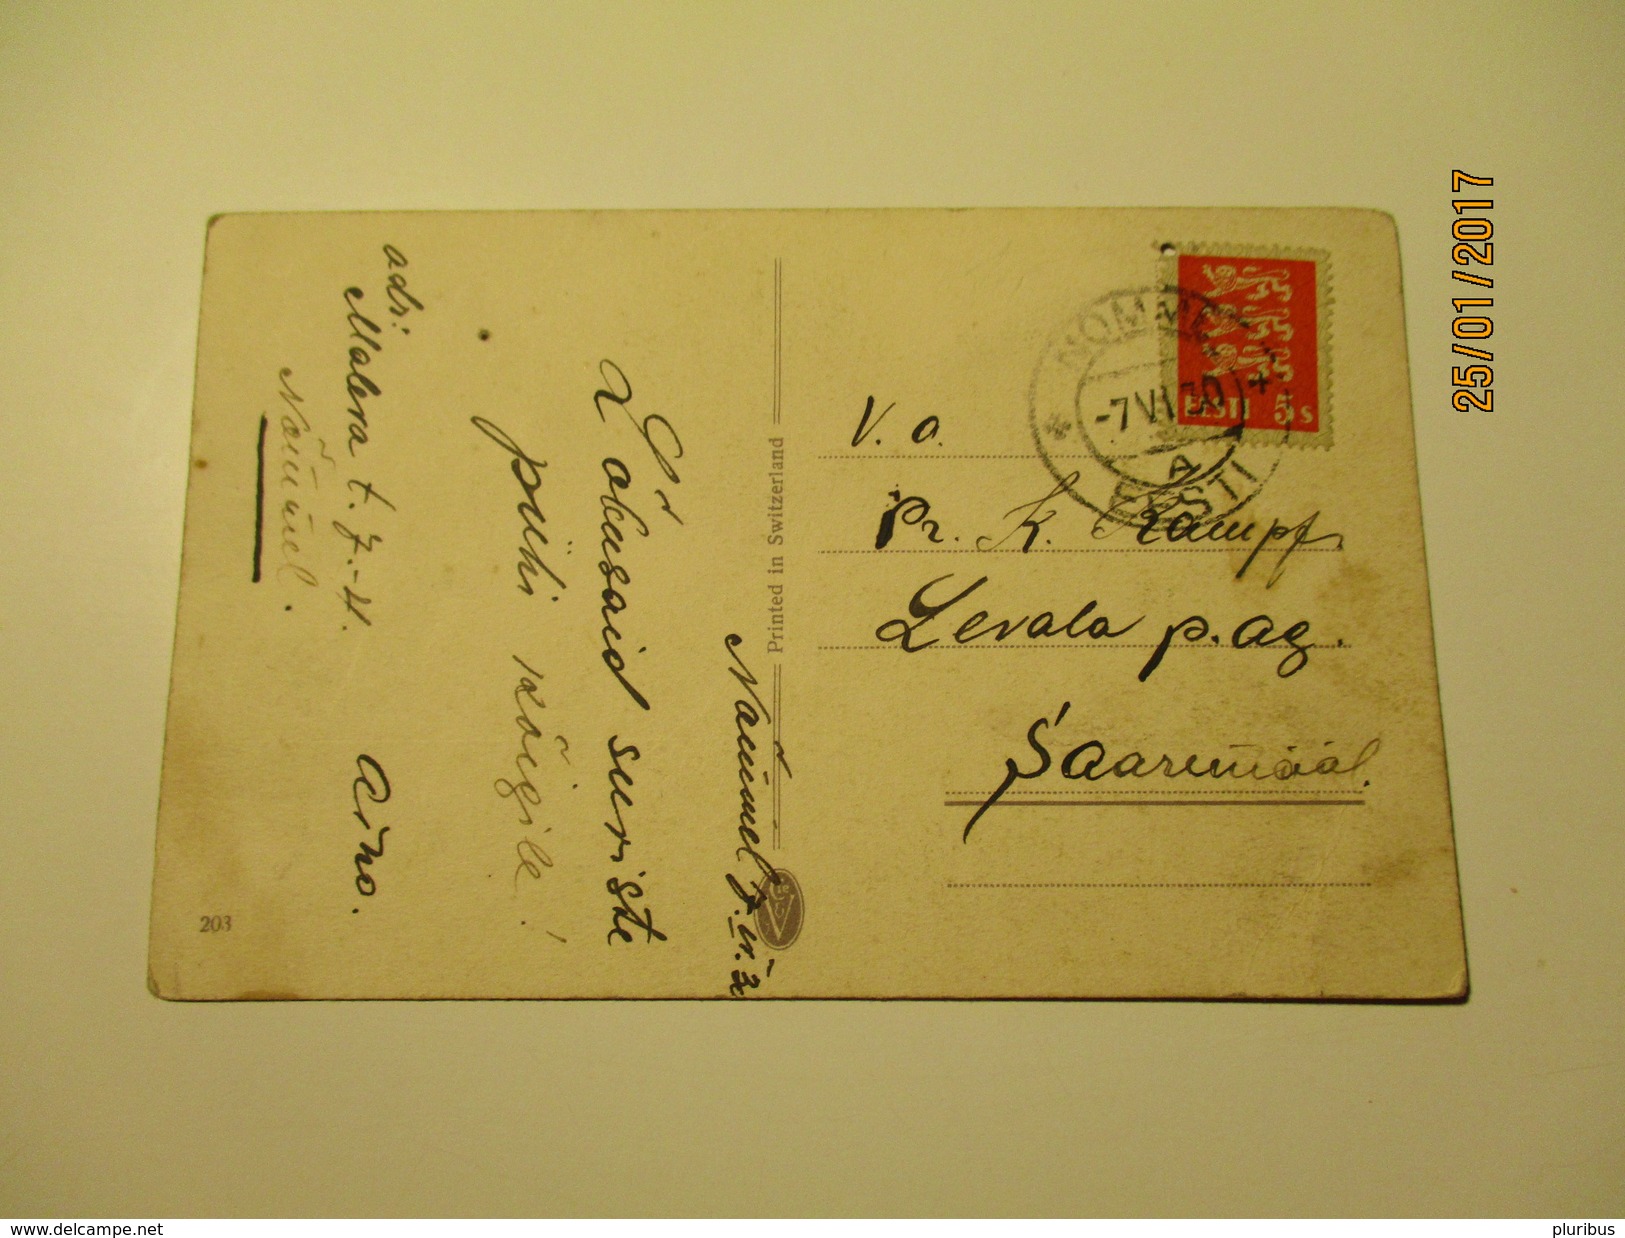 Nõmmel 7. VI. 30
Lõbusaid suriste
pühi kõigile!
Aino.
adr:
Malera t. 7.-4.
Nõmmel.
203
Printed in Switzerland
V. a.
Pr. K. Kampf
Levala p. ag.
Saaremaal.
NÕMME
-7 VI 30
EESTI
A
EESTI 5 S
25/01/2017
www.delcampe.net
pluribus